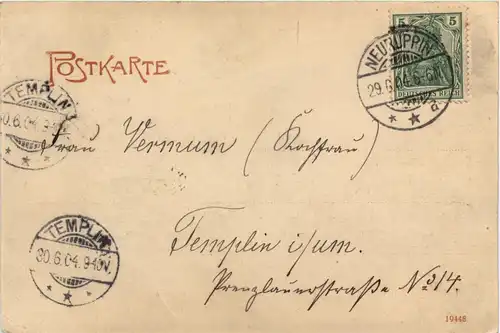 POSTKARTE
5 5
DEUTSCHES REICH
NEURUPPIN
29.6.04
TEMPLIN
30.6.04.9-10V.
Frau Vermum (Kochfrau)
TEMPLIN
30.6.04.9-10V.
Templin i/um.
Prenzlauerstraße No 14.
19448